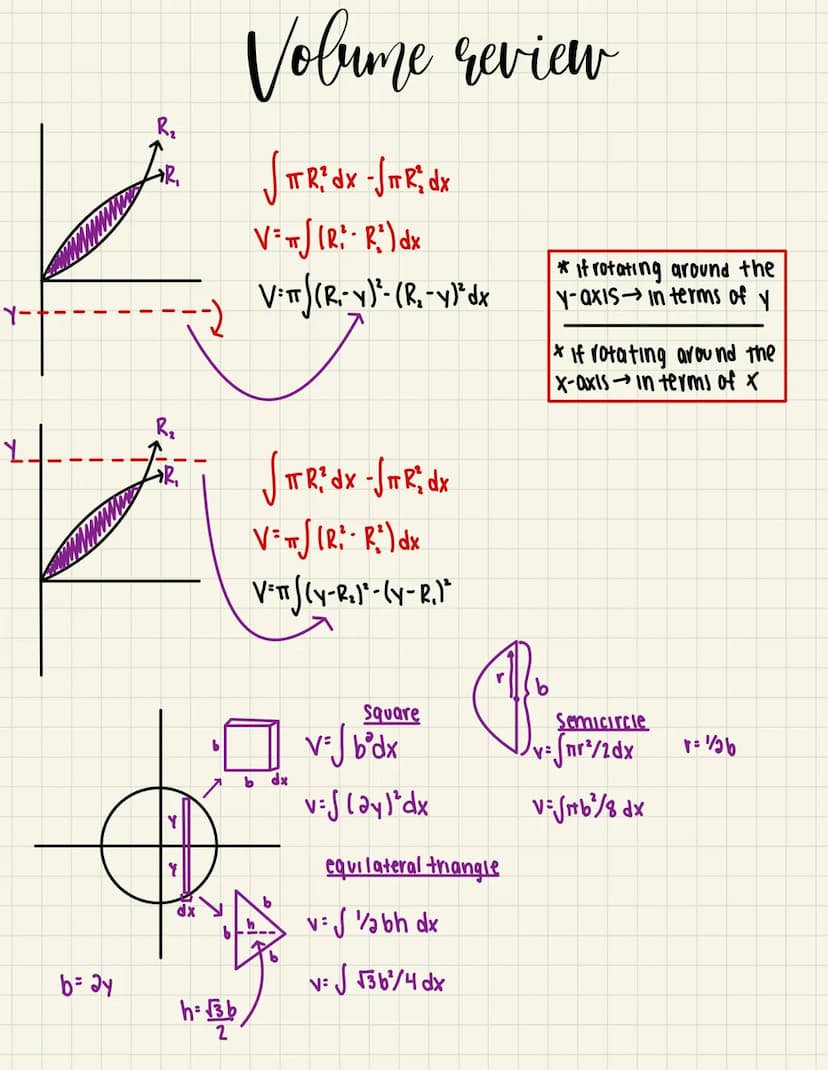 Volume review
R₂
R₁
∫πR₁² dx - ∫πR₂² dx
V=π∫(R₁² - R₂²)dx
V=π∫(R₁-y)² - (R₂-y)² dx
Y
* if rotating around the
y-axis → in terms of y
* if rotating around the
x-axis → in terms of x
Y
R₂
R₁
∫πR₁² dx - ∫πR₂² dx
V=π∫(R₁² - R₂²)dx
V=π∫(y-R₂)² - (y-R₁)²
r
b
Square
b
b
dx
V=∫b²dx
V=∫(2y)²dx
Semicircle
V=∫πr²/2 dx
r=1/2b
V=∫πb²/8 dx
Y
Y
dx
equilateral triangle
b
b
h
b
V=∫1/2bh dx
V=∫√3b²/4 dx
b=2y
h=√3b/2